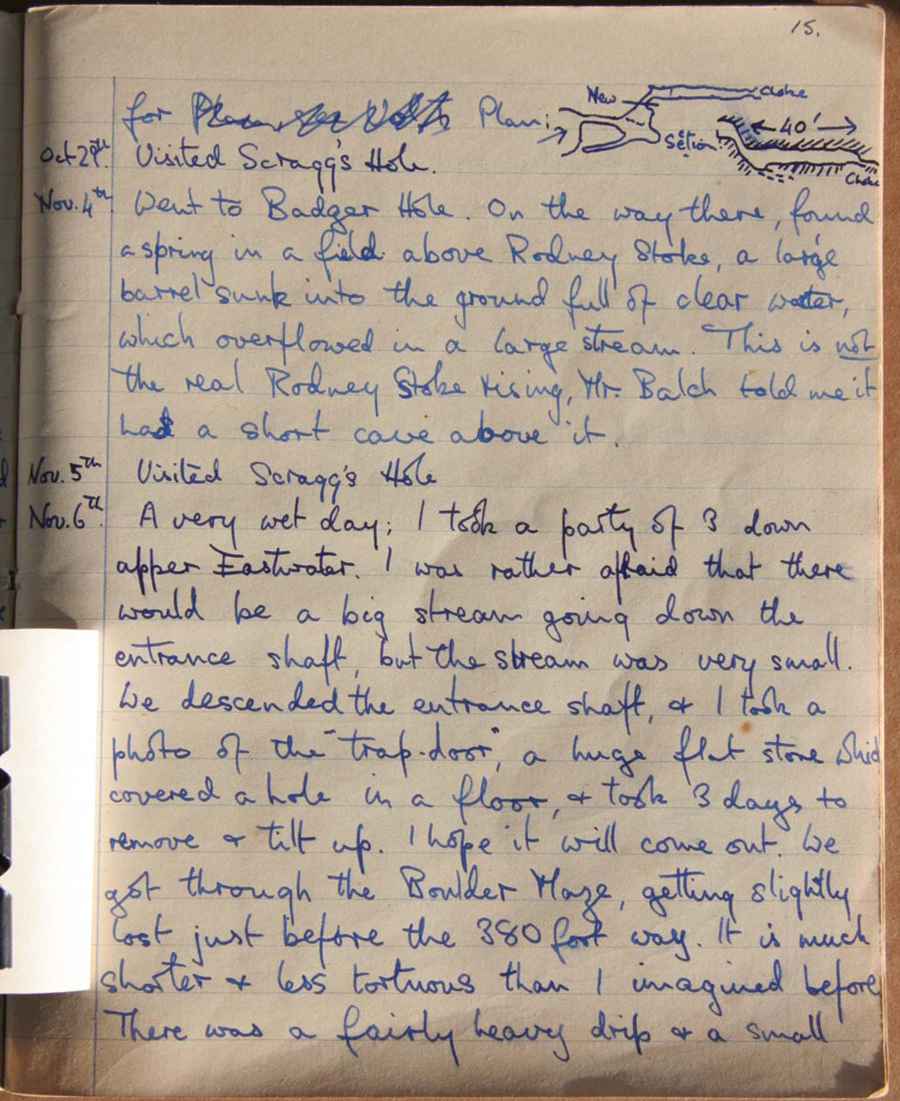 15.
for Plan:
New
Choke
Section:
40'
Choke
Oct 29th. Visited Scragg's Hole.
Nov. 4th Went to Badger Hole. On the way there, found
a spring in a field above Rodney Stoke, a large
barrel sunk into the ground full of clear water,
which overflowed in a large stream. This is not
the real Rodney Stoke rising, Mr. Balch told me it
had a short cave above it.
Nov. 5th Visited Scragg's Hole
Nov. 6th. A very wet day; I took a party of 3 down
upper Eastwater. I was rather afraid that there
would be a big stream going down the
entrance shaft, but the stream was very small.
We descended the entrance shaft, & I took a
photo of the "trap-door", a huge flat stone which
covered a hole in a floor, & took 3 days to
remove & tilt up. I hope it will come out. We
got through the Boulder Maze, getting slightly
lost just before the 380 foot way. It is much
shorter & less tortuous than I imagined before
There was a fairly heavy drip & a small